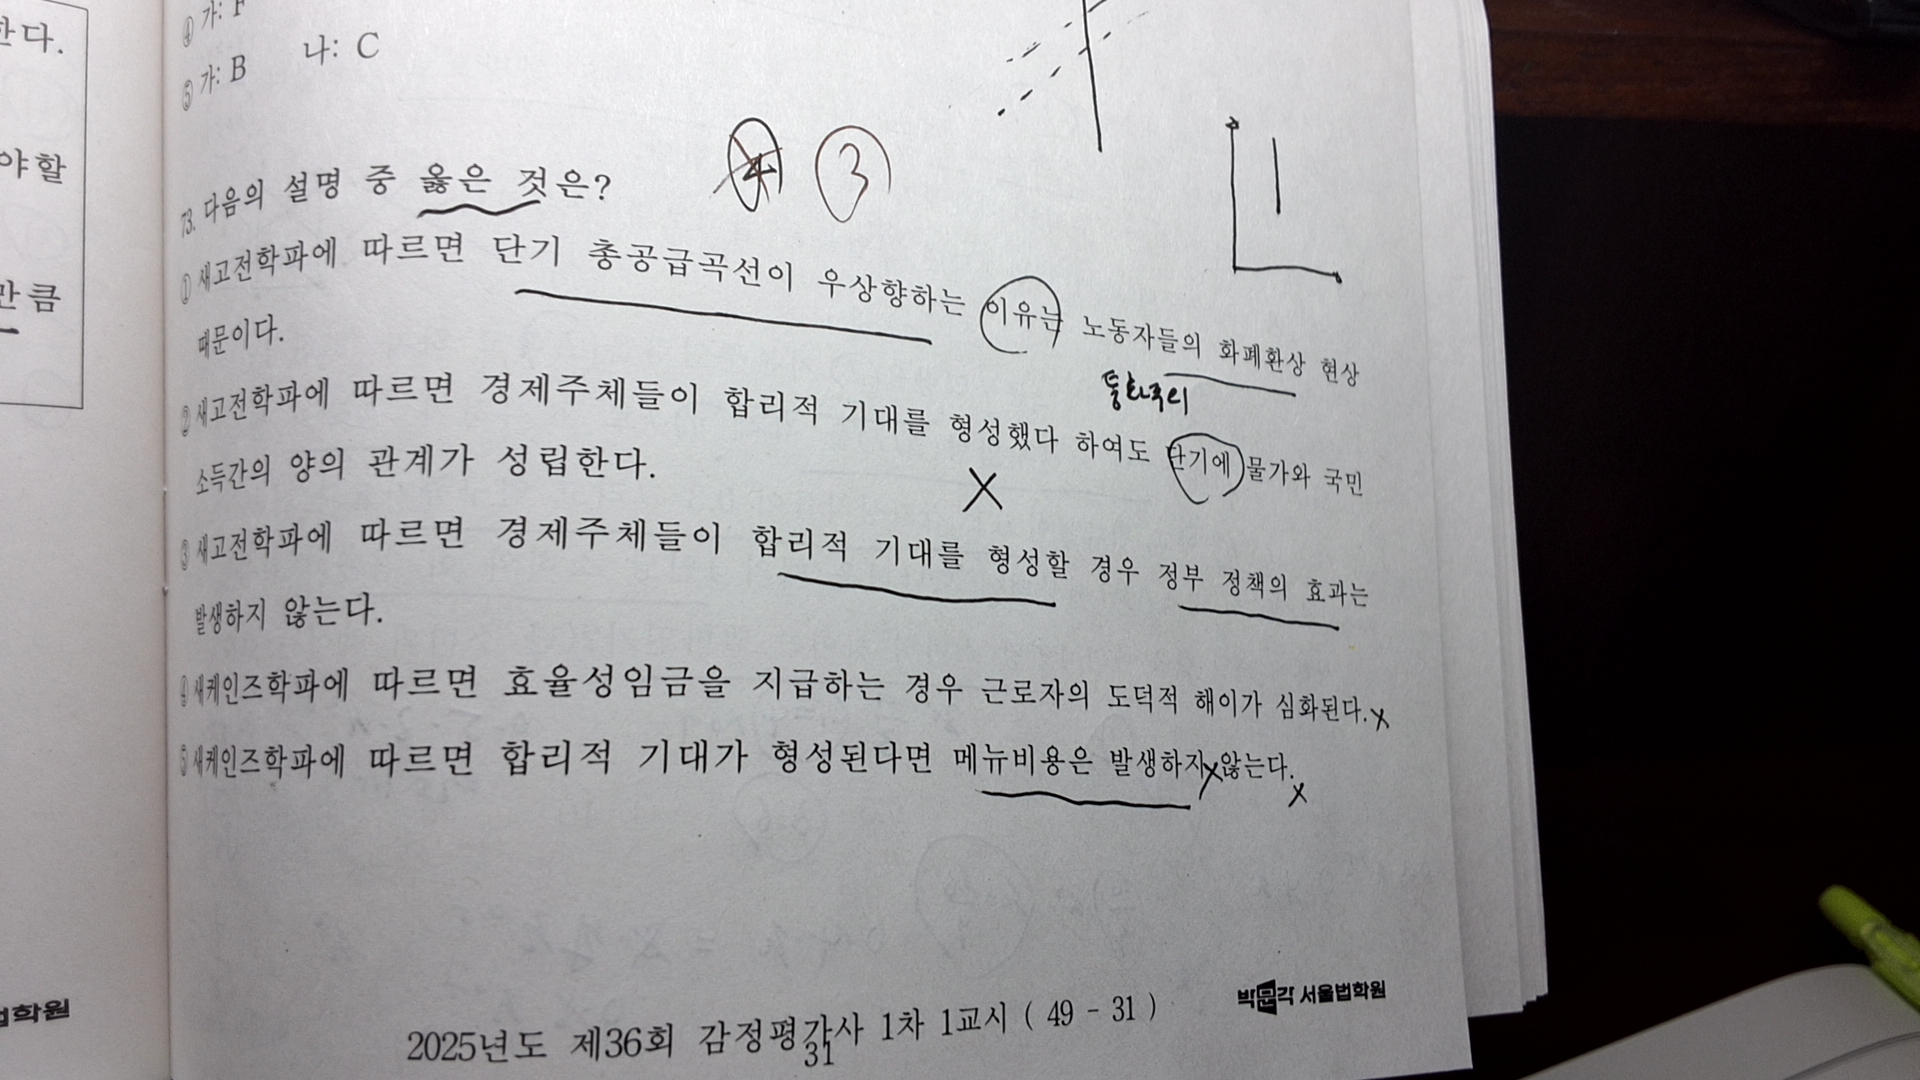 한다.
야할
만큼
법학원
④ 가: F
⑤ 가: B 나: C
④ ③
73. 다음의 설명 중 옳은 것은?
① 새고전학파에 따르면 단기 총공급곡선이 우상향하는 이유는 노동자들의 화폐환상 현상
때문이다.
통화주의
② 새고전학파에 따르면 경제주체들이 합리적 기대를 형성했다 하여도 단기에 물가와 국민
소득간의 양의 관계가 성립한다. X
③ 새고전학파에 따르면 경제주체들이 합리적 기대를 형성할 경우 정부 정책의 효과는
발생하지 않는다.
④ 새케인즈학파에 따르면 효율성임금을 지급하는 경우 근로자의 도덕적 해이가 심화된다. X
⑤ 새케인즈학파에 따르면 합리적 기대가 형성된다면 메뉴비용은 발생하지 않는다. X
박문각 서울법학원
2025년도 제36회 감정평가사 1차 1교시 ( 49 - 31 )
31